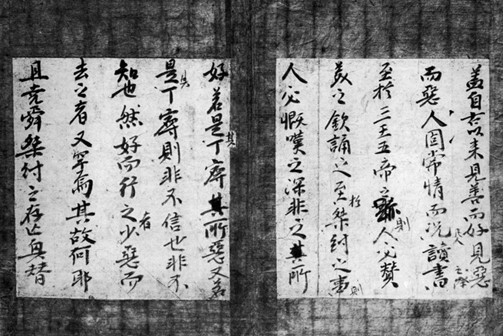 蓋自古以来見善而好見惡
而惡人固常情而况讀書
至於三王五帝之
則人必賛
美之欽誦之至桀紂之事
人必慨嘆之深非之其所
好若是丁寧其所惡又若
是丁寧則非不信也非不
知也然好而行之少惡而
去之者又罕焉其故何耶
且堯舜桀紂之存亡與替